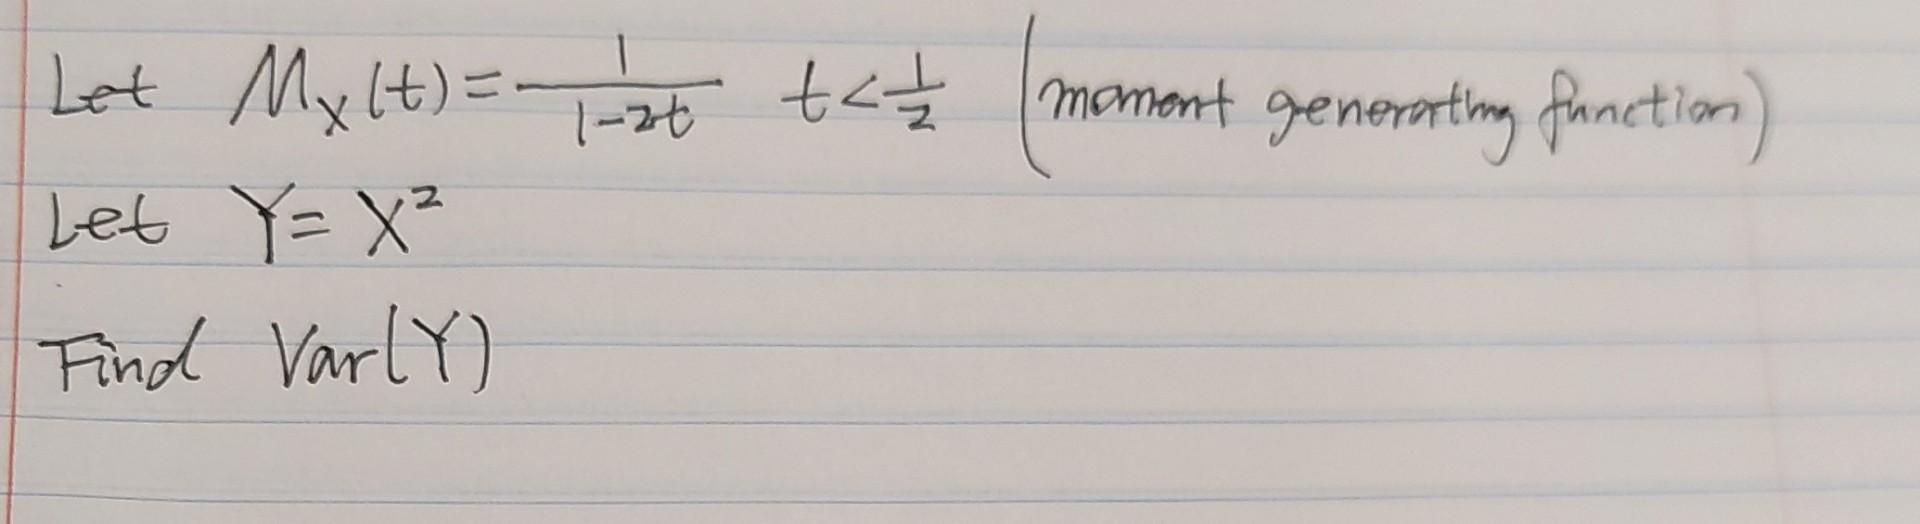 Let M_X(t) = 1/(1-2t) t < 1/2 (moment generating function)
Let Y = X²
Find Var(Y)